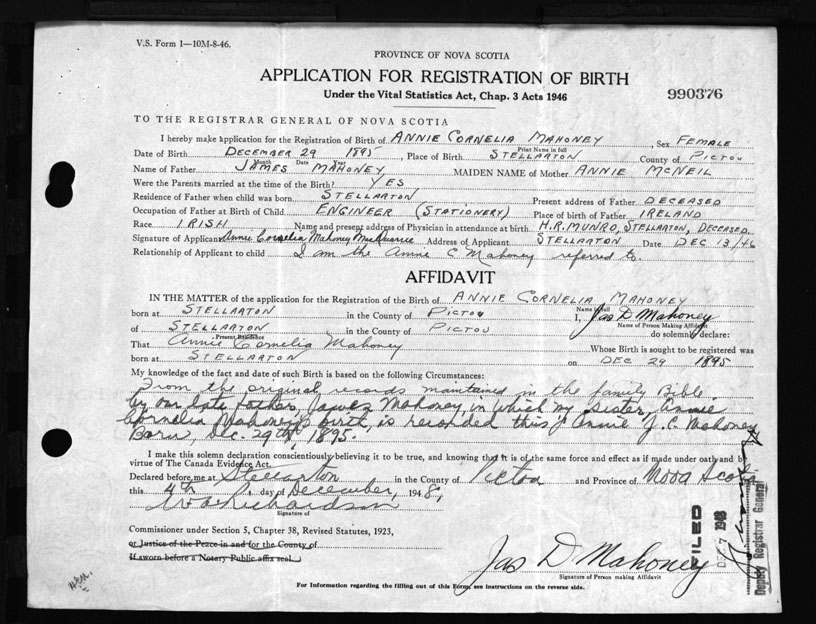 V.S. Form 1—10M-8-46.
PROVINCE OF NOVA SCOTIA
APPLICATION FOR REGISTRATION OF BIRTH
Under the Vital Statistics Act, Chap. 3 Acts 1946
990376
TO THE REGISTRAR GENERAL OF NOVA SCOTIA
I hereby make application for the Registration of Birth of ANNIE CORNELIA MAHONEY, Sex FEMALE
Print Name in full
Date of Birth DECEMBER 29 1895, Place of Birth STELLARTON County of PICTOU
Month Date Year
Name of Father JAMES MAHONEY MAIDEN NAME of Mother ANNIE McNEIL
Were the Parents married at time of the Birth? YES
Residence of Father when child was born STELLARTON Present address of Father DECEASED
Occupation of Father at Birth of Child ENGINEER (STATIONERY) Place of birth of Father IRELAND
Race IRISH Name and present address of Physician in attendance at birth H.R. MUNRO, STELLARTON, DECEASED
Signature of Applicant Annie Cornelia Mahoney MacQuarrie Address of Applicant STELLARTON Date DEC 13/46
Relationship of Applicant to child I am the Annie C Mahoney referred to.
AFFIDAVIT
IN THE MATTER of the application for the Registration of the Birth of ANNIE CORNELIA MAHONEY
Name in full
born at STELLARTON in the County of PICTOU I, Jas D Mahoney
Name of Person Making Affidavit
of STELLARTON in the County of PICTOU do solemnly declare:
Present Residence
That Annie Cornelia Mahoney Whose Birth is sought to be registered was
born at STELLARTON on DEC 29 1895
My knowledge of the fact and date of such Birth is based on the following Circumstances:
From the original records maintained in the family Bible
by our late father, James Mahoney, in which my sister, Annie
Cornelia Mahoney's birth, is recorded thus; Annie J. C. Mahoney
Born, Dec. 29th, 1895.
I make this solemn declaration conscientiously believing it to be true, and knowing that it is of the same force and effect as if made under oath and by
virtue of The Canada Evidence Act.
Declared before me at Stellarton in the County of Pictou and Province of Nova Scotia
this 4th day of December, 1948,
Richardson
Signature of
Commissioner under Section 5, Chapter 38, Revised Statutes, 1923,
or Justice of the Peace in and for the County of
If sworn before a Notary Public affix seal
Jas D Mahoney
Signature of Person making Affidavit
For Information regarding the filling out of this Form, see instructions on the reverse side.
FILED
7 1948
Deputy Registrar General